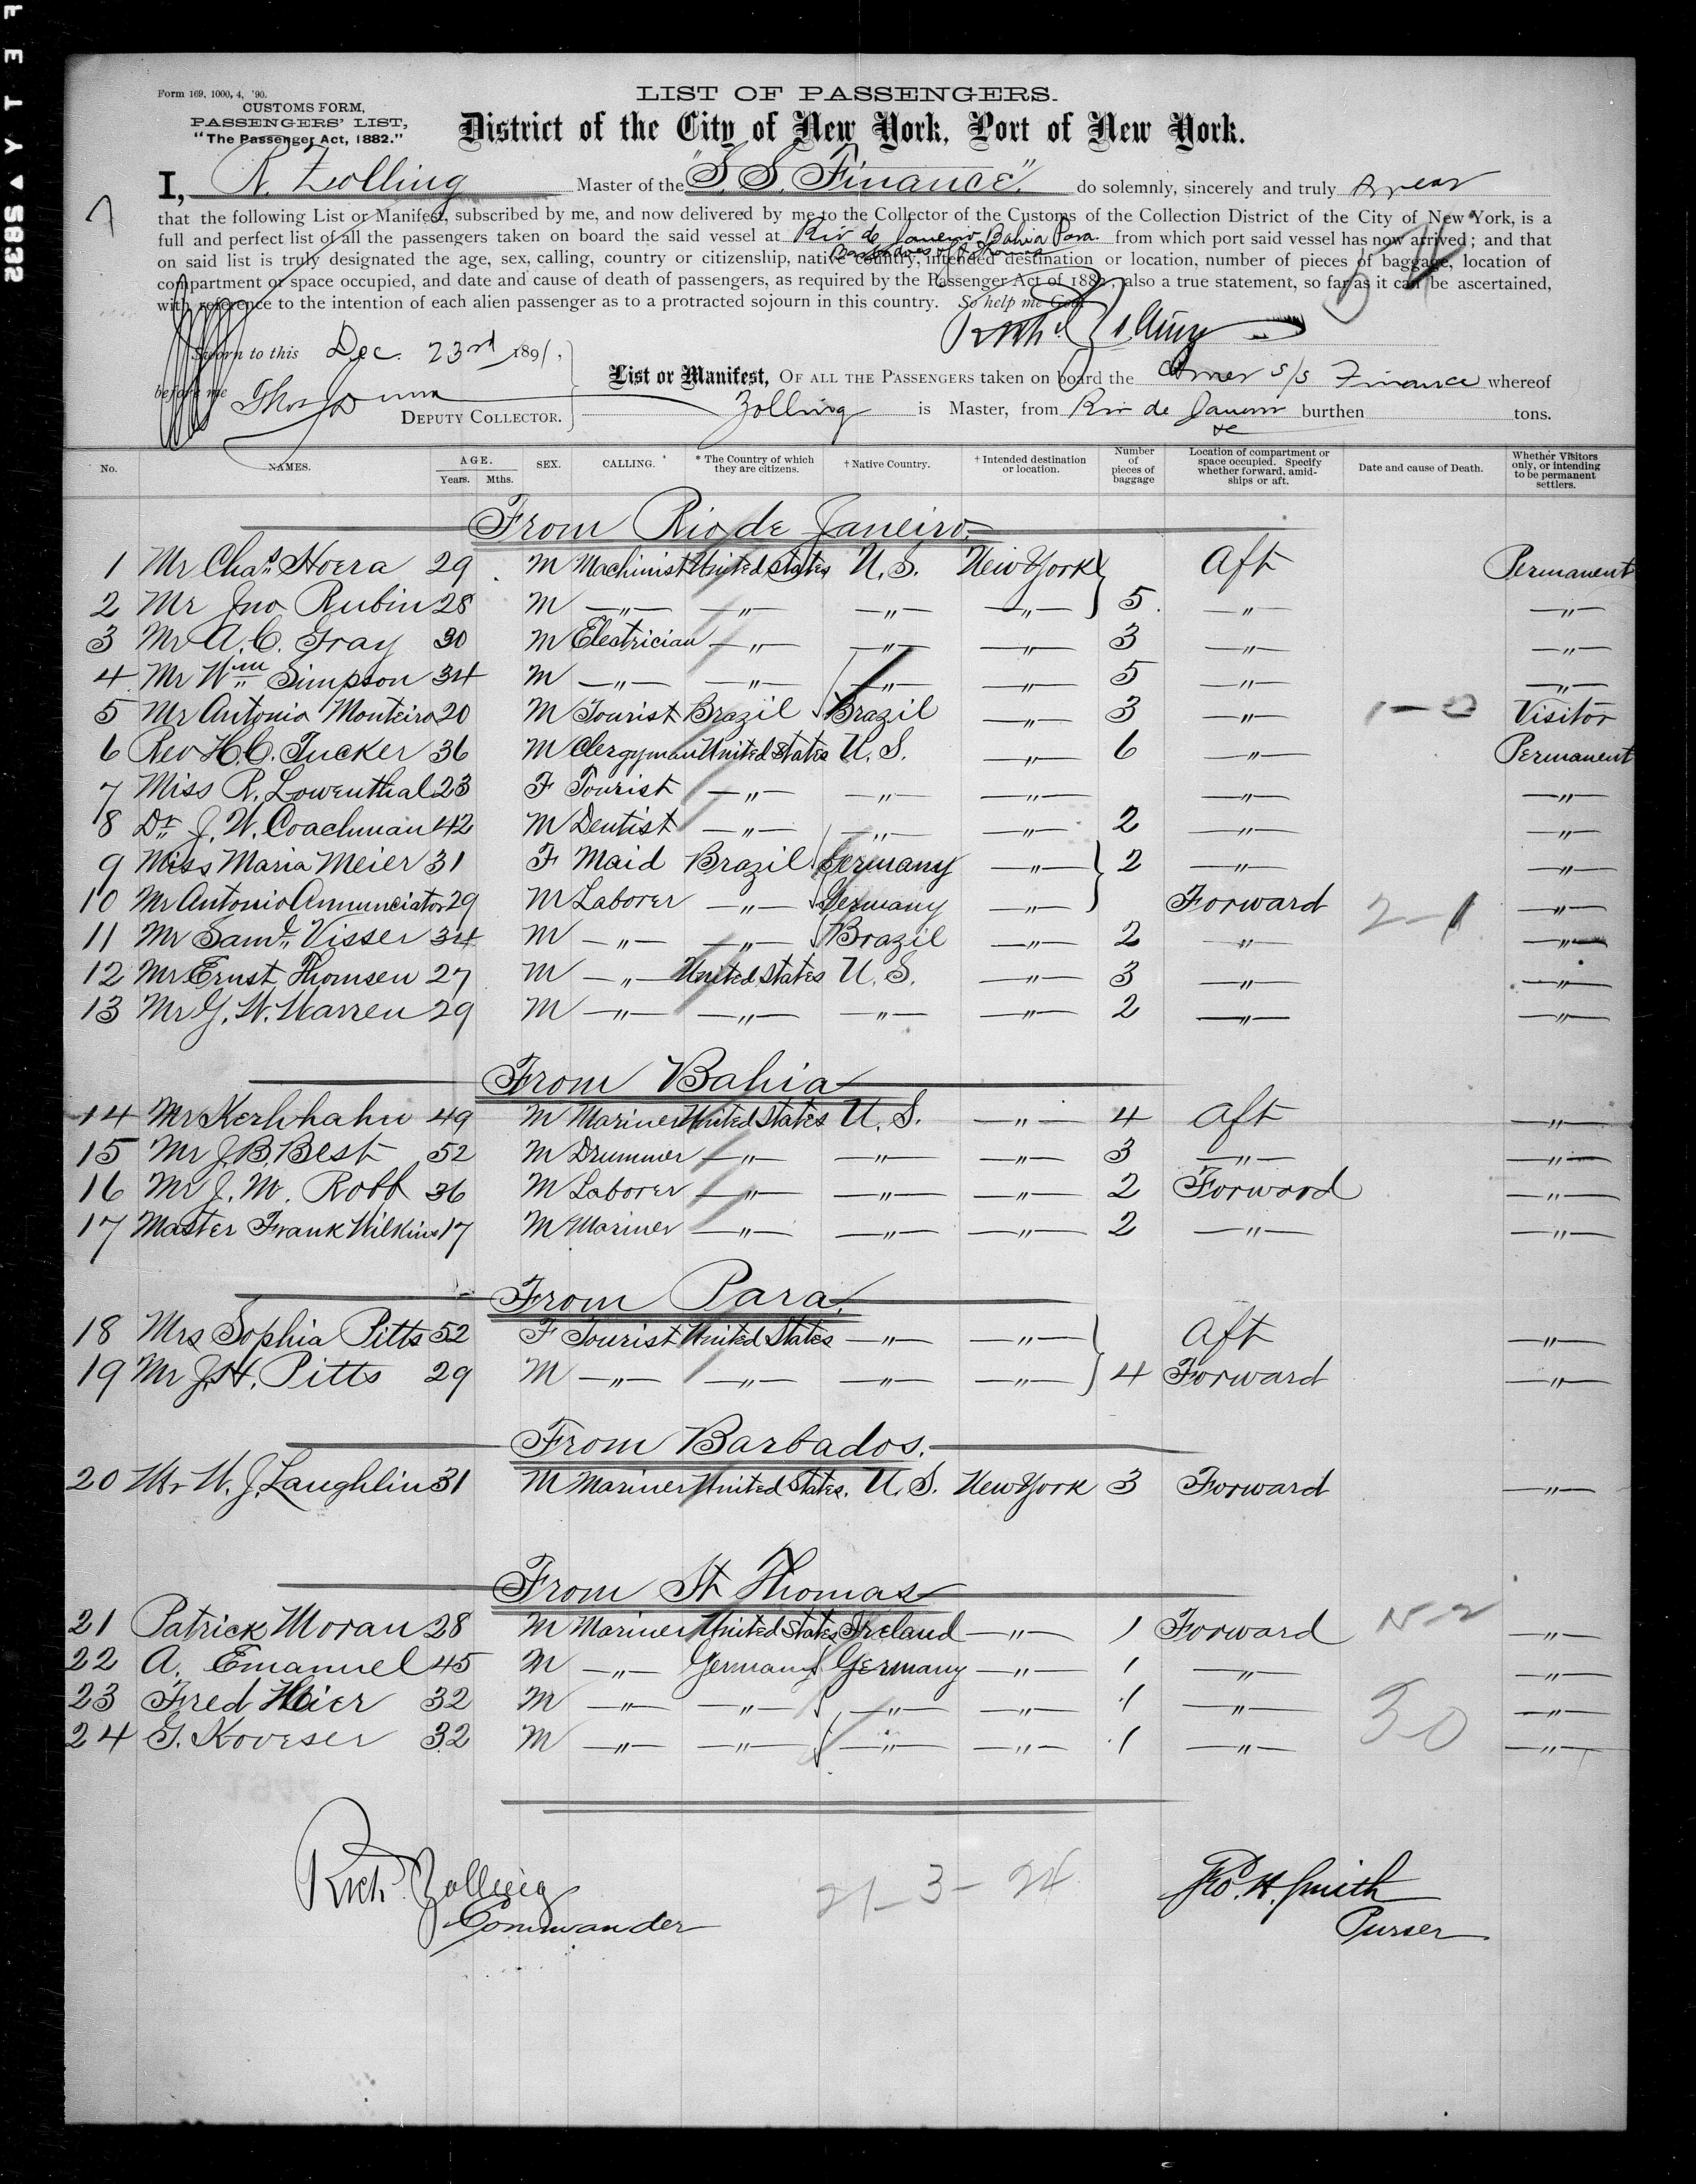 Form 169, 1000, 4, '90.
CUSTOMS FORM,
PASSENGERS' LIST,
"The Passenger Act, 1882."
LIST OF PASSENGERS.
District of the City of New York, Port of New York.
I, R. Zolling Master of the "S. S. Finance" do solemnly, sincerely and truly swear
that the following List or Manifest, subscribed by me, and now delivered by me to the Collector of the Customs of the Collection District of the City of New York, is a
full and perfect list of all the passengers taken on board the said vessel at Rio de Janeiro Bahia Para from which port said vessel has now arrived; and that
Barbados & St Thomas
on said list is truly designated the age, sex, calling, country or citizenship, native country, intended destination or location, number of pieces of baggage, location of
compartment or space occupied, and date and cause of death of passengers, as required by the Passenger Act of 1882; also a true statement, so far as it can be ascertained,
with reference to the intention of each alien passenger as to a protracted sojourn in this country. So help me God.
Sworn to this Dec. 23rd 1891,
before me
DEPUTY COLLECTOR.
List or Manifest, OF ALL THE PASSENGERS taken on board the Amer s/s Finance whereof
Zolling is Master, from Rio de Janeiro &c burthen tons.
No. NAMES. AGE. Years. Mths. SEX. CALLING. * The Country of which they are citizens. † Native Country. † Intended destination or location. Number of pieces of baggage Location of compartment or space occupied. Specify whether forward, amidships or aft. Date and cause of Death. Whether Visitors only, or intending to be permanent settlers.
From Rio de Janeiro.
1 Mr Chas. Hoera 29 M Machinist United States U. S. New York Aft Permanent
2 Mr Jno Rubin 28 M —"— —"— —"— —"— 5 —"— —"—
3 Mr A. C. Gray 30 M Electrician —"— —"— —"— 3 —"— —"—
4 Mr Wm Simpson 34 M —"— —"— —"— —"— 5 —"— —"—
5 Mr Antonio Monteiro 20 M Tourist Brazil Brazil —"— 3 —"— 1—0 Visitor
6 Rev H. C. Tucker 36 M Clergyman United States U. S. —"— 6 —"— Permanent
7 Miss R. Lowenthal 23 F Tourist —"— —"— —"— —"— —"—
8 Dr J. W. Coachman 42 M Dentist —"— —"— —"— 2 —"— —"—
9 Miss Maria Meier 31 F Maid Brazil Germany —"— 2 —"— —"—
10 Mr Antonio Annunciator 29 M Laborer —"— Germany —"— Forward 2—1 —"—
11 Mr Saml. Visser 34 M —"— —"— Brazil —"— 2 —"— —"—
12 Mr Ernst Thomsen 27 M —"— United States U. S. —"— 3 —"— —"—
13 Mr G. W. Warren 29 M —"— —"— —"— —"— 2 —"— —"—
From Bahia
14 Mr Kerlhhahn 49 M Mariner United States U. S. —"— 4 Aft —"—
15 Mr J. B. Best 52 M Drummer —"— —"— —"— 3 —"— —"—
16 Mr J. M. Robb 36 M Laborer —"— —"— —"— 2 Forward —"—
17 Master Frank Wilkins 17 M Mariner —"— —"— —"— 2 —"— —"—
From Para.
18 Mrs Sophia Pitts 52 F Tourist United States —"— —"— Aft —"—
19 Mr J. H. Pitts 29 M —"— —"— —"— —"— 4 Forward —"—
From Barbados.
20 Mr W. J. Laughlin 31 M Mariner United States. U. S. New York 3 Forward —"—
From St Thomas
21 Patrick Moran 28 M Mariner United States Ireland —"— 1 Forward —"—
22 A. Emanuel 45 M —"— Germany Germany —"— 1 —"— —"—
23 Fred Meier 32 M —"— —"— —"— —"— 1 —"— —"—
24 G. Koveser 32 M —"— —"— —"— —"— 1 —"— 30 —"—
Rich Zolling
Commander
21—3—24
Geo. H. Smith
Purser